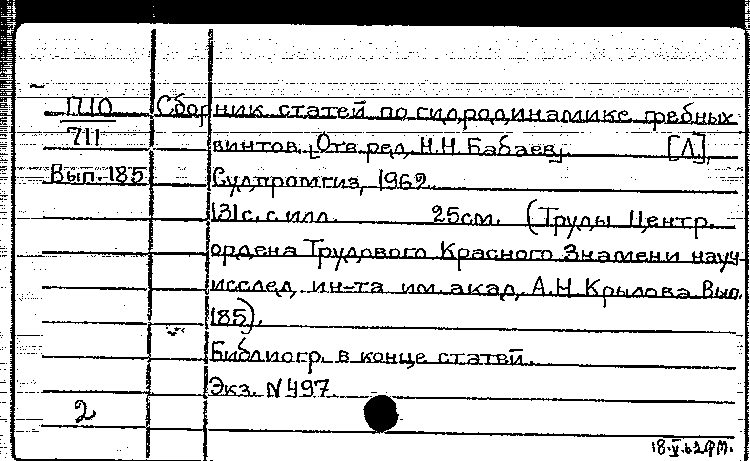 П10 Сборник статей по гидродинамике гребных
711 винтов. [Отв. ред. Н.Н. Бабаев]. [Л.],
Вып. 185 Судпромгиз, 1962.
131 с. с илл. 25см. (Труды Центр.
ордена Трудового Красного Знамени науч-
исслед. ин-та им. акад. А.Н. Крылова. Вып.
185).
Библиогр. в конце статей.
Экз. N 497
2
18.V.62